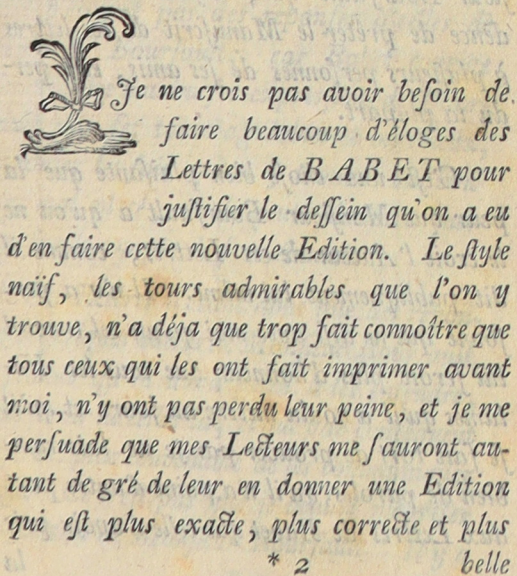 Je ne crois pas avoir beſoin de
faire beaucoup d'éloges des
Lettres de BABET pour
juſtifier le deſſein qu'on a eu
d'en faire cette nouvelle Edition. Le ſtyle
naïf, les tours admirables que l'on y
trouve, n'a déja que trop fait connoître que
tous ceux qui les ont fait imprimer avant
moi, n'y ont pas perdu leur peine, et je me
perſuade que mes Lecteurs me ſauront au-
tant de gré de leur en donner une Edition
qui eſt plus exacte, plus correcte et plus
* 2 belle